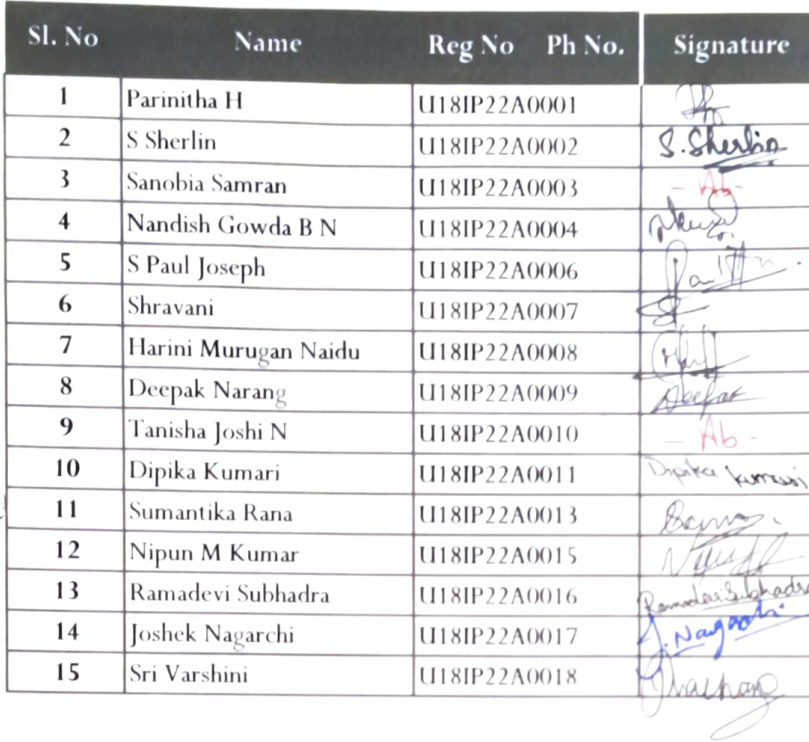 Sl. No Name Reg No Ph No. Signature
1 Parinitha H U18IP22A0001
2 S Sherlin U18IP22A0002 S. Sherlin
3 Sanobia Samran U18IP22A0003 - Ab -
4 Nandish Gowda B N U18IP22A0004
5 S Paul Joseph U18IP22A0006
6 Shravani U18IP22A0007
7 Harini Murugan Naidu U18IP22A0008
8 Deepak Narang U18IP22A0009 Deepak
9 Tanisha Joshi N U18IP22A0010 - Ab -
10 Dipika Kumari U18IP22A0011 Dipika kumari
11 Sumantika Rana U18IP22A0013
12 Nipun M Kumar U18IP22A0015
13 Ramadevi Subhadra U18IP22A0016
14 Joshek Nagarchi U18IP22A0017
15 Sri Varshini U18IP22A0018